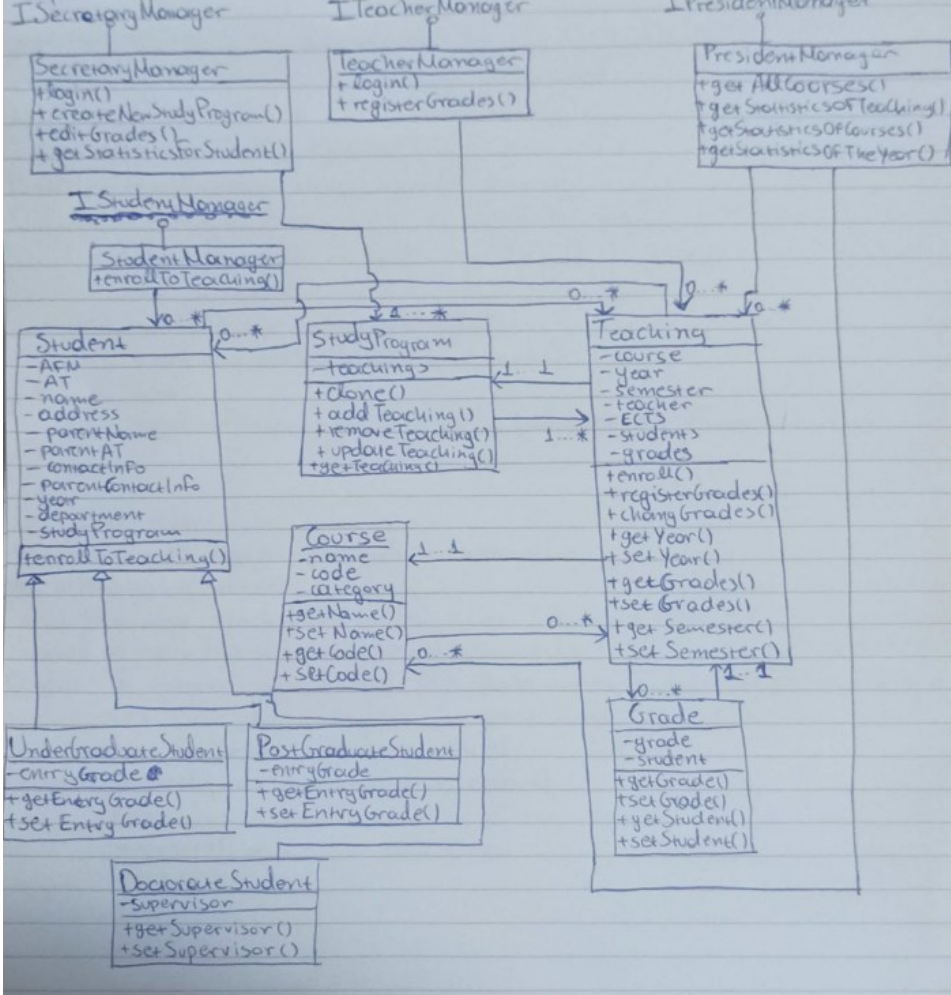 ISecretaryManager
ITeacherManager
IPresidentManager
SecretaryManager
+login()
+createNewStudyProgram()
+editGrades()
+getStatisticsForStudent()
TeacherManager
+login()
+registerGrades()
PresidentManager
+get AllCourses()
+getStatisticsOfTeaching()
+getStatisticsOfCourses()
+getStatisticsOfTheYear()
IStudentManager
StudentManager
+enrollToTeaching()
0...*
0...*
1...*
0...*
0...*
0...*
Student
-AFM
-AT
-name
-address
-parentName
-parentAT
-contactInfo
-parentContactInfo
-year
-department
-studyProgram
+enrollToTeaching()
StudyProgram
-teachings
+clone()
+addTeaching()
+removeTeaching()
+updateTeaching()
+getTeaching()
1...1
1...*
Teaching
-course
-year
-semester
-teacher
-ECTS
-students
-grades
+enroll()
+registerGrades()
+changGrades()
+getYear()
+setYear()
+getGrades()
+set Grades()
+get Semester()
+set Semester()
Course
-name
-code
-category
+getName()
+setName()
+getCode()
+setCode()
1...1
0...*
0...*
1..1
0...*
Grade
-grade
-student
+getGrade()
+setGrade()
+getStudent()
+setStudent()
UnderGraduateStudent
-entryGrade
+getEntryGrade()
+set EntryGrade()
PostGraduateStudent
-entryGrade
+getEntryGrade()
+set EntryGrade()
DoctorateStudent
-supervisor
+getSupervisor()
+setSupervisor()